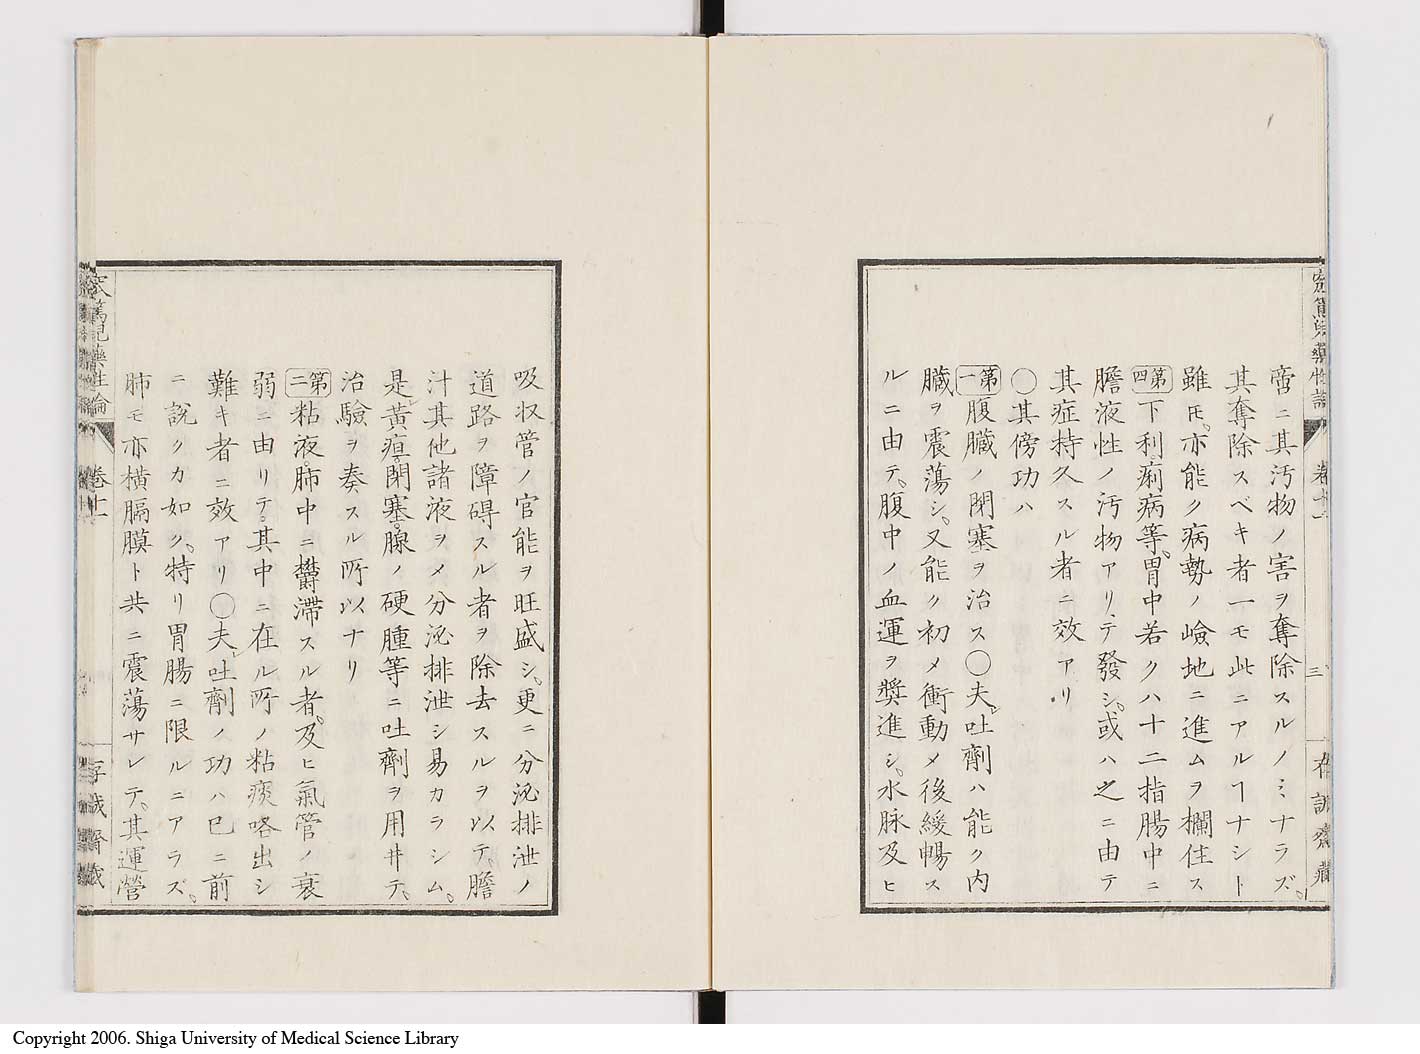 啻ニ其汚物ノ害ヲ奪除スルノミナラズ。
其奪除スベキ者一モ此ニアルヿナシト
雖𪜈、亦能ク病勢ノ嶮地ニ進ムヲ欄住ス
第四下利、痢病等、胃中若クハ十二指腸中ニ
膽液性ノ汚物アリテ發シ、或ハ之ニ由テ
其症持久スル者ニ效アリ
〇其傍功ハ
第一腹臓ノ閉塞ヲ治ス〇夫吐劑ハ能ク内
臓ヲ震蕩シ、又能ク初メ衝動メ後緩暢ス
ルニ由テ、腹中ノ血運ヲ奬進シ、水脉及ヒ
吸収管ノ官能ヲ旺盛シ、更ニ分泌排泄ノ
道路ヲ障碍スル者ヲ除去スルヲ以テ、膽
汁其他諸液ヲメ分泌排泄シ易カラシム。
是黄疸、閉塞、腺ノ硬腫等ニ吐劑ヲ用井テ、
治驗ヲ奏スル所以ナリ
第二粘液、肺中ニ欝滞スル者、及ヒ氣管ノ衰
弱ニ由リテ、其中ニ在ル所ノ粘痰咯出シ
難キ者ニ效アリ〇夫吐劑ノ功ハ已ニ前
ニ説クカ如ク、特リ胃腸ニ限ルニアラズ。
肺モ亦横膈膜ト共ニ震蕩サレテ、其運營
窊篤兒藥性論 卷十一
三
存誠齋藏
Copyright 2006. Shiga University of Medical Science Library